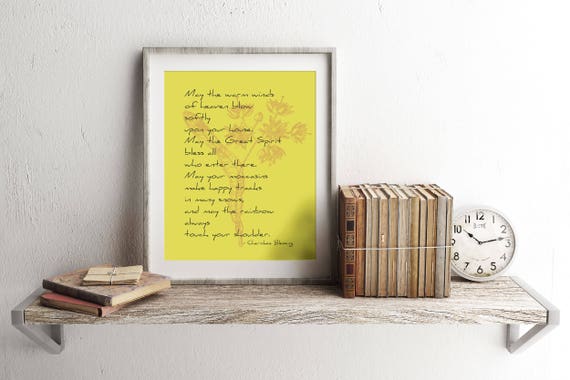 May the warm winds
of heaven blow
softly
upon your house.
May the Great Spirit
bless all
who enter there.
May your moccasins
make happy tracks
in many snows,
and may the rainbow
always
touch your shoulder.
Cherokee Blessing
12
1
2
3
4
5
6
7
8
9
10
11